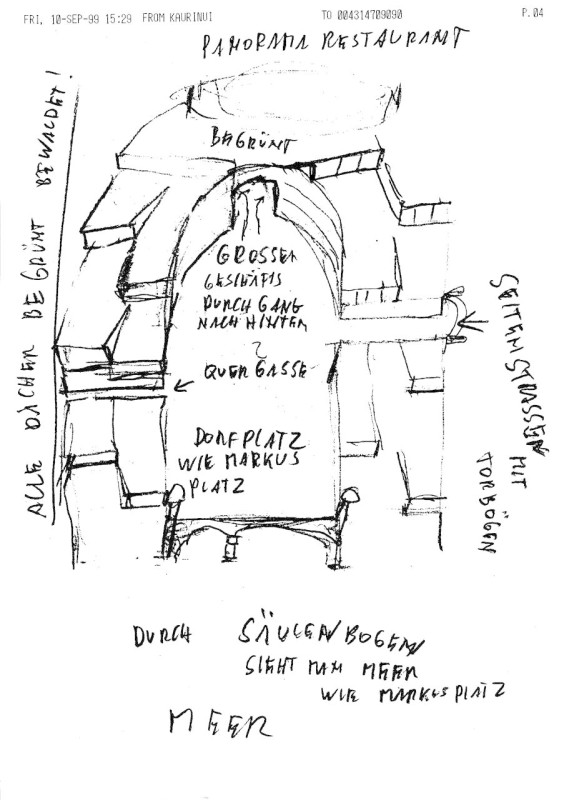 FRI, 10-SEP-99 15:29 FROM KAURINUI TO 004314709090 P.04
PANORAMA RESTAURANT
BEGRÜNT
ALLE DÄCHER BEGRÜNT BEWALDET!
GROSSER
GESCHÄFTS
DURCHGANG
NACH HINTEN
2
QUERGASSE
SEITENSTRASSEN
MIT
TORBÖGEN
DORFPLATZ
WIE MARKUS
PLATZ
DURCH SÄULENBOGEN
SIEHT MAN MEER
WIE MARKUSPLATZ
MEER